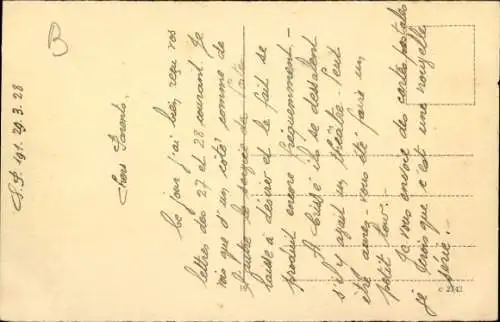 S.P. 191. 29.3.28
Chers Parents.
Ce jour j'ai bien reçu vos
lettres des 27 et 28 courant. Je
vois que d'un côté comme de
l'autre le service de
laisse à désirer et le fait se
produit encore fréquemment -
A Cusset ils se dessalent
s'il y avait un théâtre. Peut
être aurez-vous été faire un
petit tour.-
Je vous envoie des cartes postales
je crois que c'est une nouvelle
série.